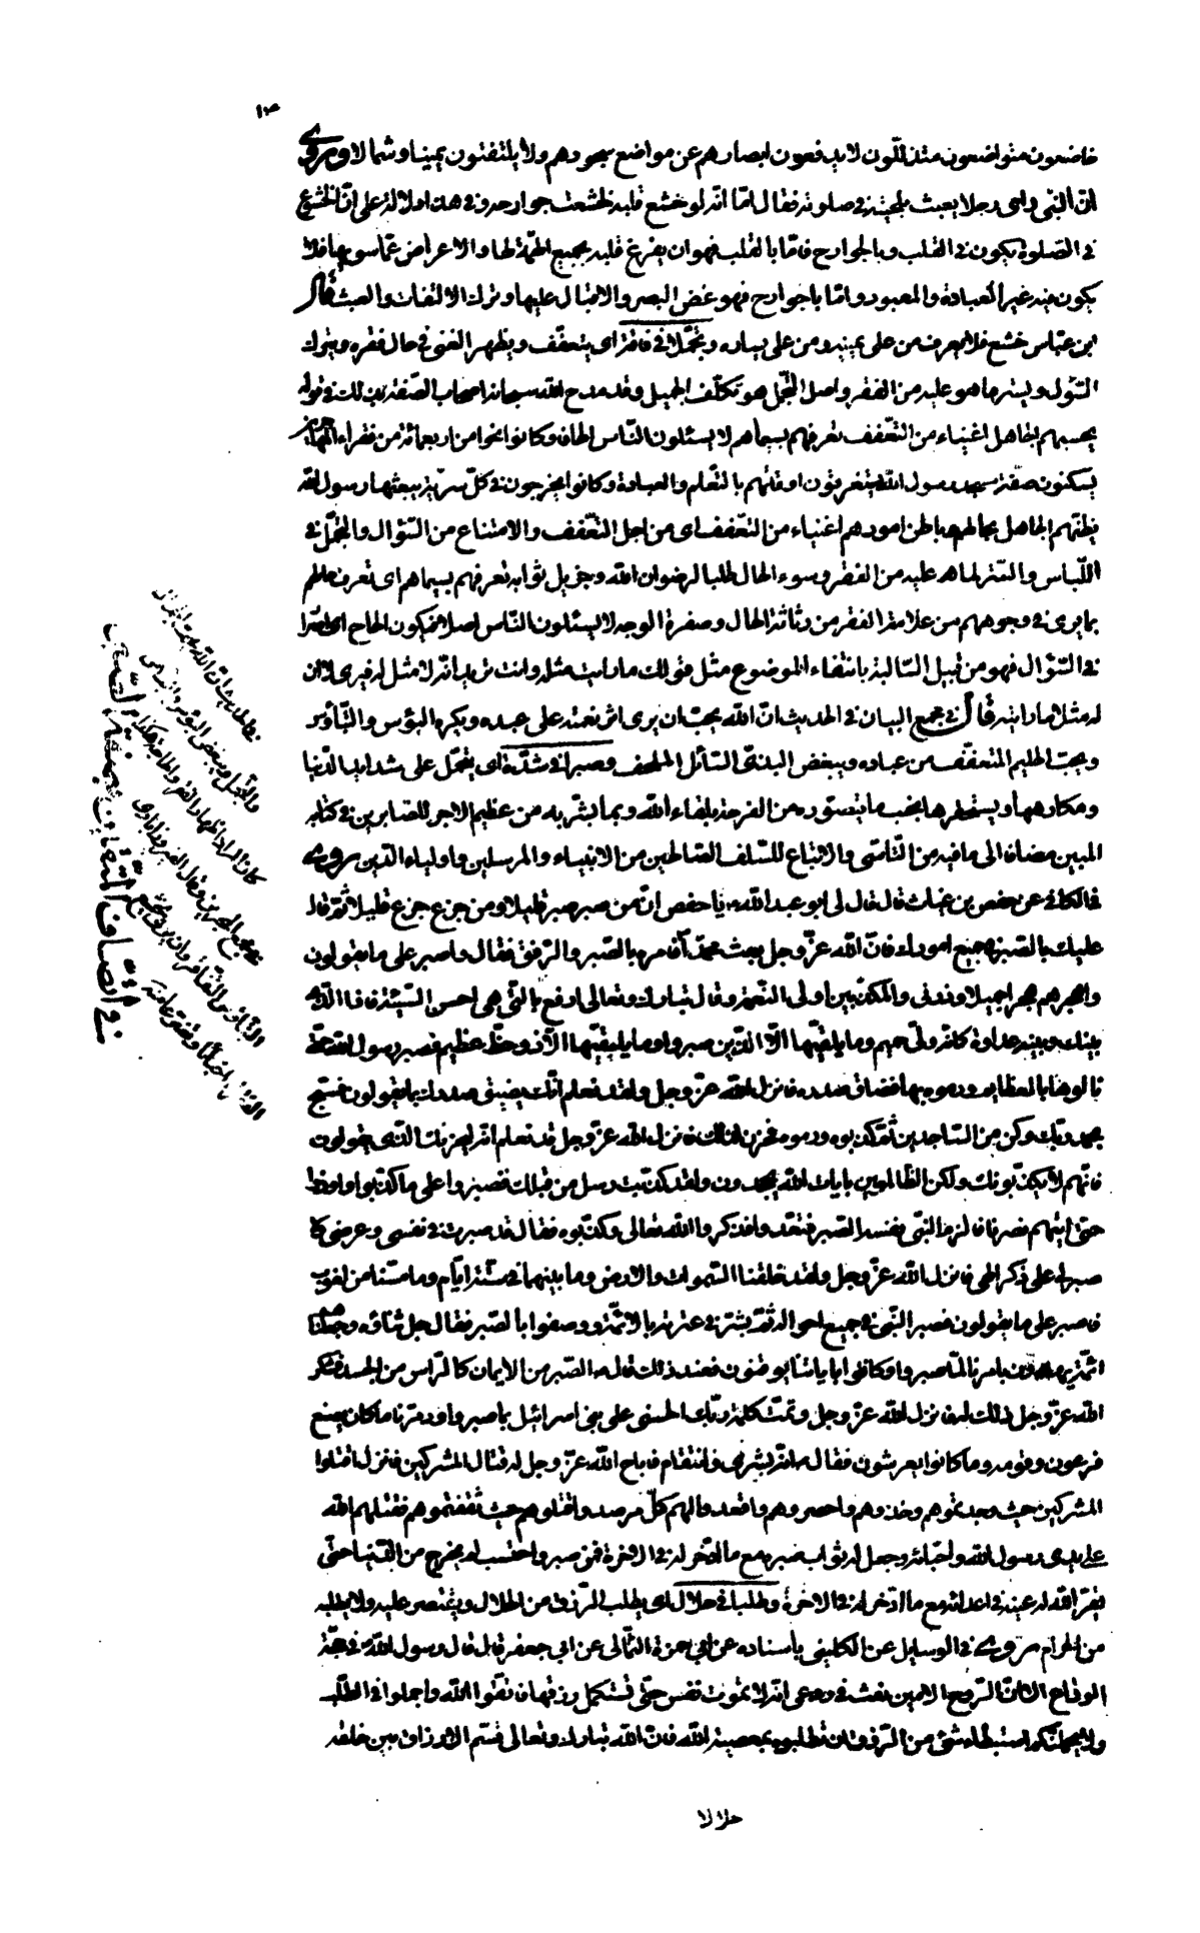 خاضعون متواضعون متذللون لا يدفعون ابصارهم عن مواضع سجودهم ولا يلتفتون يمينا وشمالا وروى
انّ النبي راى رجلا يعبث بلحيته في صلوته فقال امّا انّه لو خشع قلبه لخشعت جوارحه وفي هذا دلالة على انّ الخشوع
في الصّلوة يكون في القلب وبالجوارح فامّا بالقلب فهو ان يفرغ قلبه بجميع الهمّة لها والاعراض عمّا سويها فلا
يكون فيه غير العبادة والمعبود وامّا بالجوارح فهو غض البصر والاقبال عليها وترك الالتفات والعبث قال
ابن عبّاس خشع فلا يعرف من على يمينه ومن على يساره وتجمّلا في فاقة اى يتعفّف ويظهر الغنى في حال فقره ويترك
السّؤل ويستر ما هو عليه من الفقر واصل التجمّل هو تكلّف الجميل وقد مدح الله سبحانه اصحاب الصّفة بذلك في قوله
يحسبهم الجاهل اغنياء من التعّفف تعرفهم بسيماهم لا يسئلون النّاس الحافا وكانوا نحوا من اربعمائة من فقراء المهاجرين
يسكنون صفّة مسجد رسول الله يستغرقون اوقاتهم بالتعلّم والعبادة وكانوا يخرجون في كلّ سريّة يبعثها رسول الله
يظنّهم الجاهل بحالهم وباطن امورهم اغنياء من التعّفف اى من اجل التعّفف والامتناع من السّؤال والتجمّل في
اللّباس والستر لما هم عليه من الفقر وسوء الحال طلبا لرضوان الله وجزيل ثوابه تعرفهم بسيماهم اى تعرف حالهم
بما يرى في وجوههم من علامة الفقر من رثاثة الحال وصفرة الوجه لا يسئلون النّاس اصلا فيكون الحاح اى اصرار
في السّؤال فهو من قبيل السّالبة بانتفاء الموضوع مثل قولك ما رايت مثله وانت تريد انّه لا مثل له فيرى لا ان
له مثلا ما رايته قال في مجمع البيان في الحديث انّ الله يحبّ ان يرى اثر نعمته على عبده ويكره البؤس والتّبأوس
ويحبّ الحليم المتعفّف من عباده ويبغض البذىّ السّائل الملحف وصبرا في شدّة اى يتحمّل على شدايد الدّنيا
ومكارهها ويستحقرها بجنب ما يتصوره من الفرحة بلقاء الله وبما بشّر به من عظيم الاجر للصّابرين في كتابه
المبين مضافا الى ما فيه من التّأسّى والاتباع للسّلف الصّالحين من الانبياء والمرسلين واولياء الدّين روى
في الكافي عن حفص بن غياث قال قال لى ابو عبد الله يا حفص انّ من صبر صبر قليلا ومن جزع جزع قليلا ثمّ قال
عليك بالصّبر في جميع امورك فانّ الله عزّ وجل بعث محمّدا فامره بالصّبر والرّفق فقال واصبر على ما يقولون
واهجرهم هجرا جميلا وذرنى والمكذّبين اولى النّعمة وقال تبارك وتعالى ادفع بالّتى هى احسن السّيئة فاذا الّذى
بينك وبينه عداوة كانّه ولىّ حميم وما يلقّيها الّا الّذين صبروا وما يلقّيها الّا ذو حظّ عظيم فصبر رسول الله حتّى
نالوه بالعظايم ورموه بها فضاق صدره فانزل الله عزّ وجل ولقد نعلم انّك يضيق صدرك بما يقولون فسبّح
بحمد ربّك وكن من السّاجدين ثمّ كذّبوه ورموه فحزن لذلك فانزل الله عزّ وجل قد نعلم انّه ليحزنك الذى يقولون
فانّهم لا يكذّبونك ولكن الظّالمين بايات الله يجحدون ولقد كذّبت رسل من قبلك فصبروا على ما كذّبوا واوذوا
حتّى اتيهم نصرنا فالزم النّبى نفسه الصّبر فتعدّوا فذكروا الله تعالى وكذّبوه فقال قد صبرت في نفسى وعرضى ولا
صبر لى على ذكر الهى فانزل الله عزّ وجل ولقد خلقنا السّموات والارض وما بينهما في ستّة ايّام وما مسّنا من لغوب
فاصبر على ما يقولون فصبر النّبى في جميع احواله ثمّ بشّر في عترته بالائمّة ووصفوا بالصّبر فقال جلّ ثناؤه وجعلنا منهم
ائمّة يهدون بامرنا لمّا صبروا وكانوا باياتنا يوقنون فعند ذلك قال الصّبر من الايمان كالرّاس من الجسد فشكر
الله عزّ وجل ذلك له فانزل الله عزّ وجل وتمّت كلمة ربّك الحسنى على بنى اسرائيل بما صبروا ودمّرنا ما كان يصنع
فرعون وقومه وما كانوا يعرشون فقال انّه بشرى وانتقام فاباح الله عزّ وجل له قتال المشركين فانزل اقتلوا
المشركين حيث وجدتموهم وخذوهم واحصروهم واقعدوا لهم كلّ مرصد واقتلوهم حيث ثقفتموهم فقتلهم الله
على يدى رسول الله واحبّائه وجعل له ثواب صبره مع ما ادّخر له في الاخرة فمن صبر واحتسب لم يخرج من الدّنيا حتّى
يقرّ الله له عينه في اعدائه مع ما ادّخر له في الاخرة وطلبا في حلال اى يطلب الرّزق من الحلال ويقتصر عليه ولا يطلبه
من الحرام روى في الوسايل عن الكلينى باسناده عن ابي حمزة الثّمالى عن ابي جعفر قال قال رسول الله في حجّة
الوداع الا انّ الرّوح الامين نفث في روعى انّه لا تموت نفس حتّى تستكمل رزقها فاتّقوا الله واجملوا في الطّلب
ولا يحملنّكم استبطاء شئ من الرّزق ان تطلبوه بمعصية الله فانّ الله تبارك وتعالى قسّم الارزاق بين خلقه
حلالا